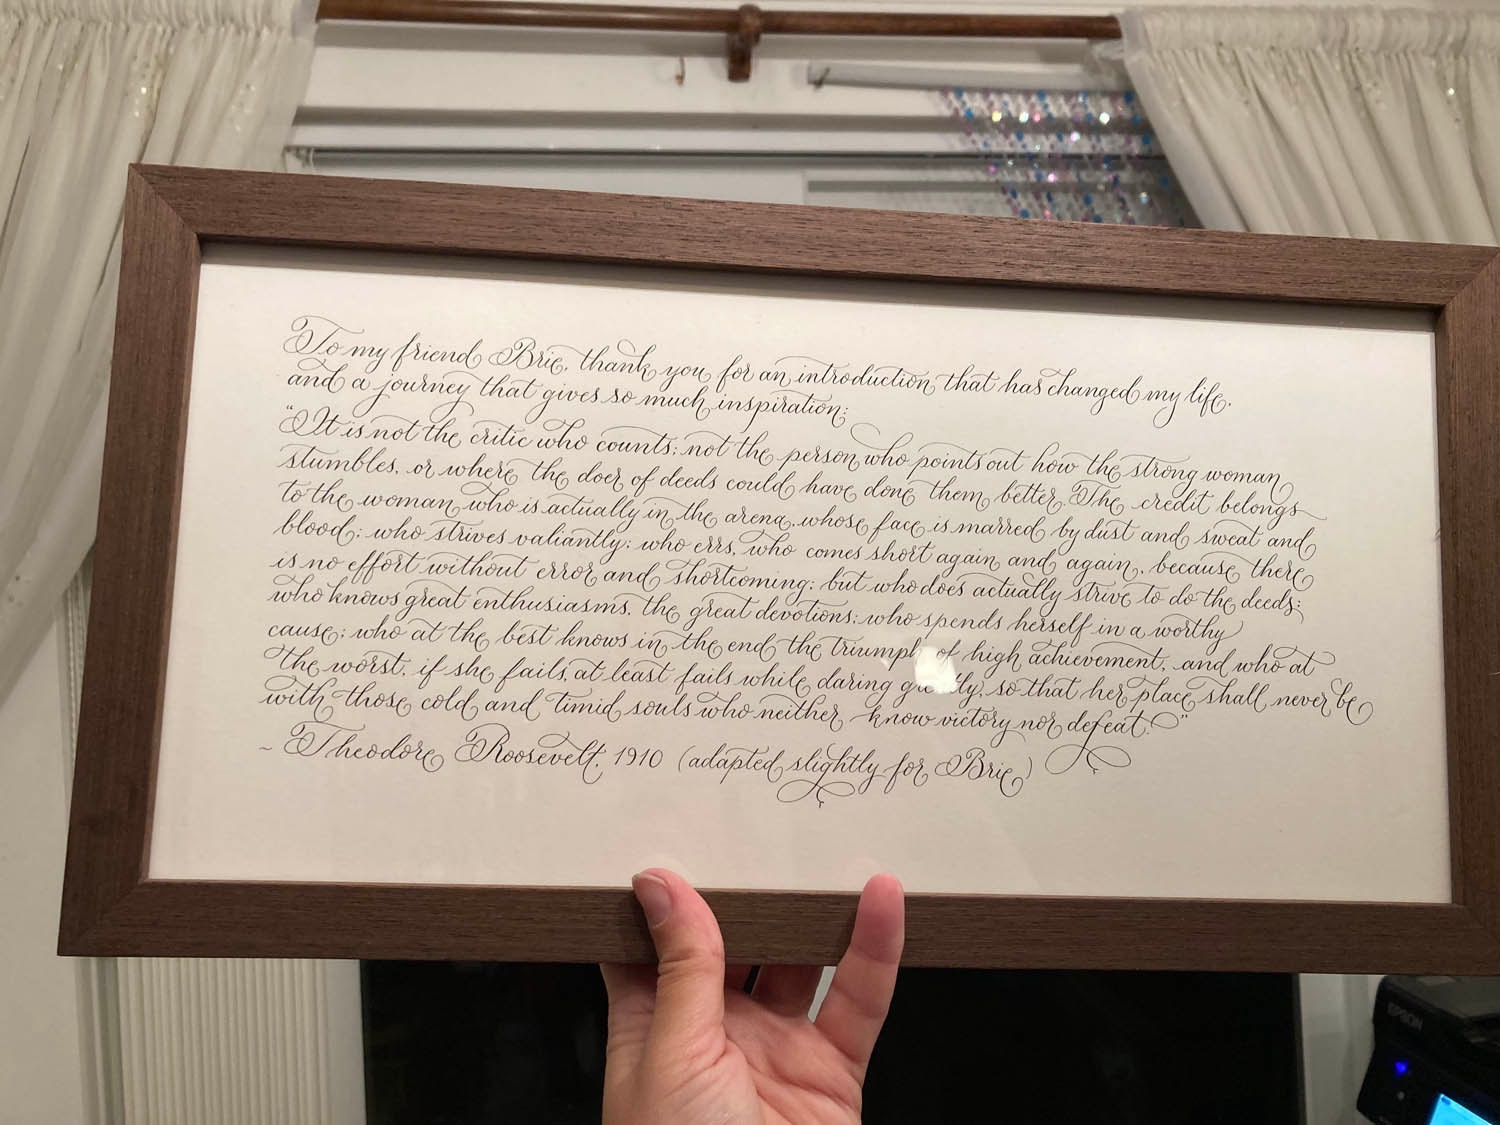 To my friend Brie, thank you for an introduction that has changed my life,
and a journey that gives so much inspiration:
"It is not the critic who counts; not the person who points out how the strong woman
stumbles, or where the doer of deeds could have done them better. The credit belongs
to the woman who is actually in the arena, whose face is marred by dust and sweat and
blood; who strives valiantly; who errs, who comes short again and again, because there
is no effort without error and shortcoming; but who does actually strive to do the deeds;
who knows great enthusiasms, the great devotions; who spends herself in a worthy
cause; who at the best knows in the end the triumph of high achievement, and who at
the worst, if she fails, at least fails while daring greatly, so that her place shall never be
with those cold and timid souls who neither know victory nor defeat."
~ Theodore Roosevelt, 1910 (adapted slightly for Brie)
EPSON